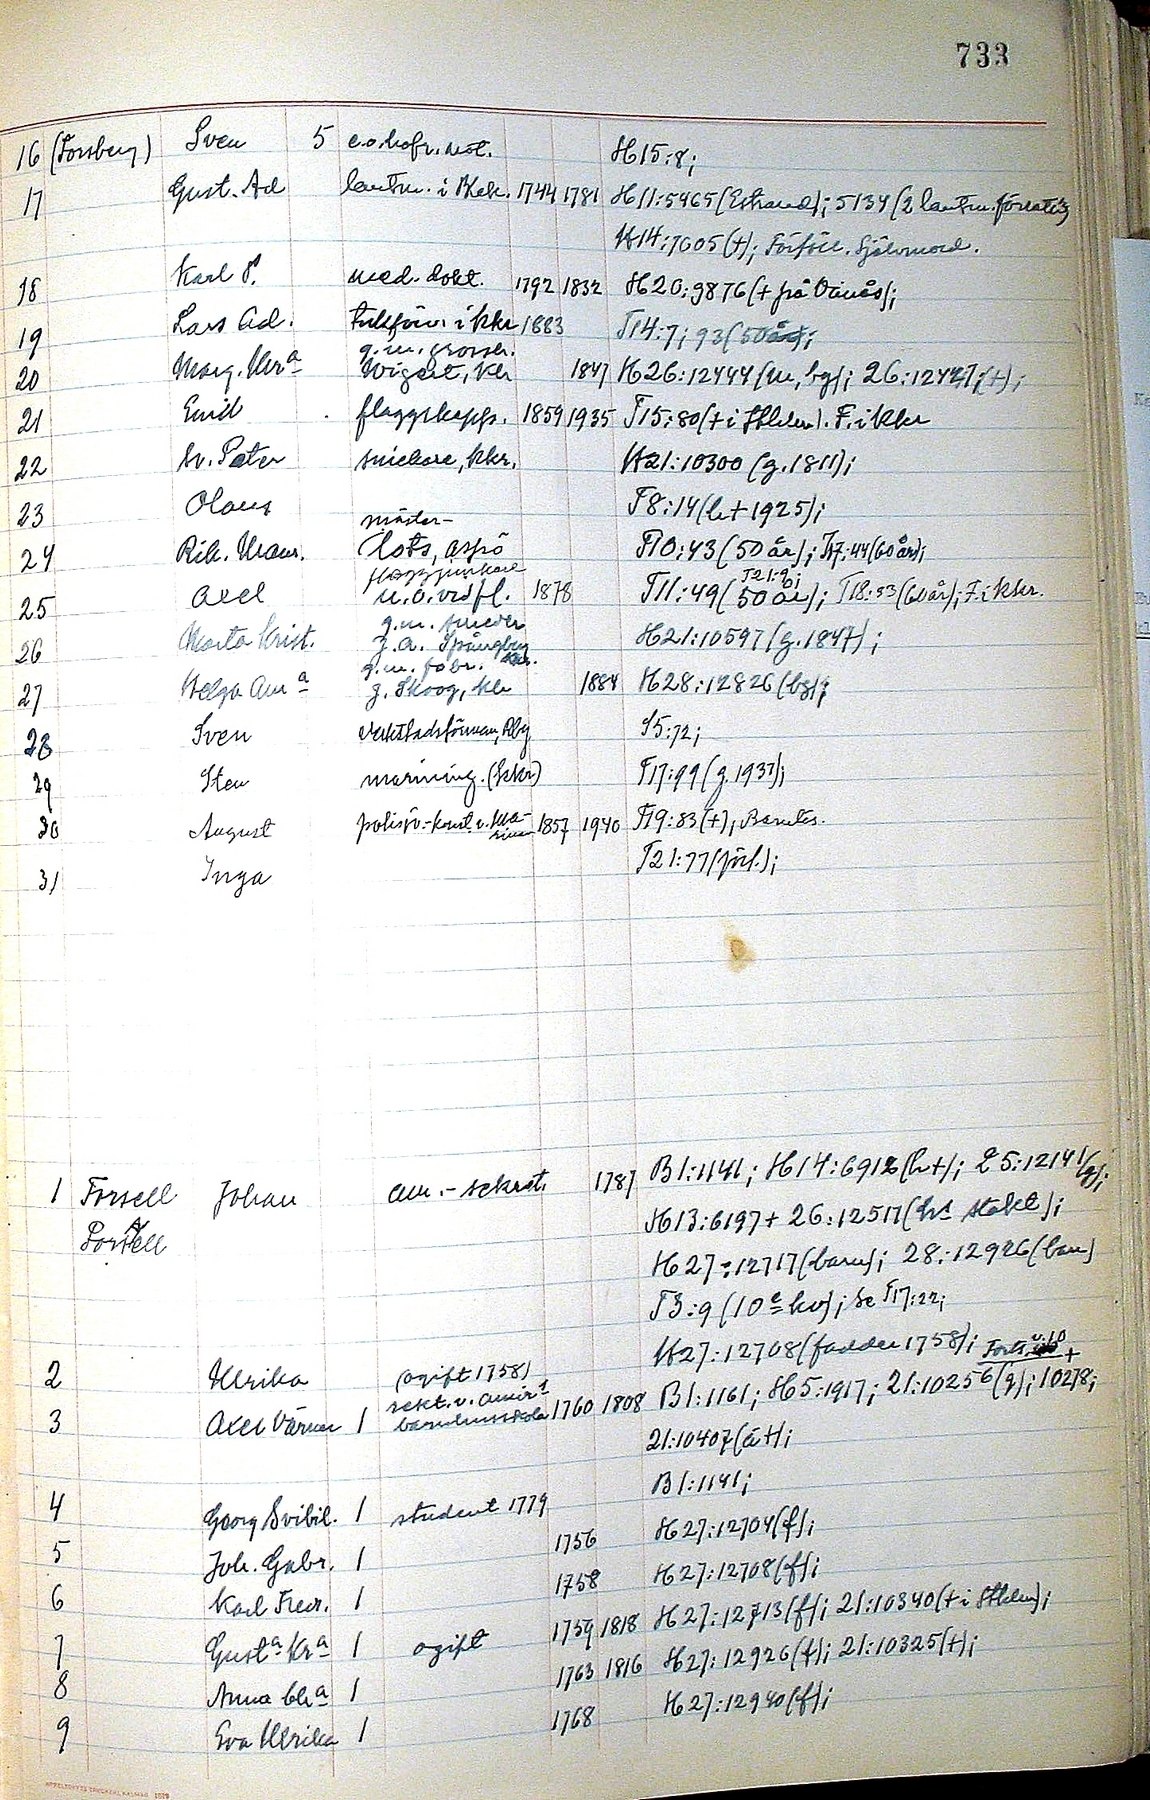 733
16 (Forsberg) Sven 5 e.o. hofr. not. H15:8;
17 Gust. Ad lantm. i Blek. 1744 1781 H11:5465 (Estrand); 5134 (2 lantm. förrättn.)
H14:7605 (+); Förföll. Självmord.
18 Karl P. med. dokt. 1792 1832 H20:9876 (+ på Vänås);
19 Lars Ad. i Kkr 1883 T14:7; 93 (50 år);
20 Marg. Ulr-a g.m. grossh. Wigert, Kkr 1847 H26:12444 (m, bg); 26:12447 (+);
21 Emil flaggskepps. 1859 1935 T15:80 (+ i Sthlm). F. i Kkr
22 Sv. Peter snickare, Kkr. H21:10300 (g. 1811);
23 Olaus T8:14 (h + 1925);
24 Rik. Uran. mäster-
lots, Aspö T10:43 (50 år); T17:44 (60 år);
25 Axel flaggjunkare
u.o. vid fl. 1878 T11:49 (50 år); T21:9; T18:53 (60 år); F. i Kkr.
26 Marta Krist. g.m. smeden
J.A. Spångberg Kkr. H21:10597 (g. 1847);
27 Helga Am-a g.m. fabr.
J. Skoog, Kkr 1884 H28:12826 (bg);
28 Sven verkstadsförman, Rby S5:72;
29 Sten marining. (Kkr) T17:99 (g. 1937);
30 August polisöv.-konst. v. Ma-
rinen 1857 1940 T19:83 (+);
31 Inga T21:77 (förl.);
1 Forsell Johan am.-sekret. 1787 B1:1141; H14:6912 (h +); 25:12141 (g);
Forssell H13:6197 + 26:12517 (hs stakt);
H27:12717 (barn); 28:12926 (barn)
T3:9 (10e kv); Se T17:22;
2 Ulrika (ogift 1758) H27:12708 (fadder 1758); Forts. n:10
3 Axel Värner 1 rekt. v. amir-t
barnhusskola 1760 1808 B1:1161; H5:1917; 21:10256 (g); 10278;
21:10407 (ä +);
4 Georg Svibil. 1 student 1779 B1:1141;
5 Joh. Gabr. 1 1756 H27:12704 (f);
6 Karl Fredr. 1 1758 H27:12708 (f);
7 Gust-a Kr-a 1 ogift 1759 1818 H27:12713 (f); 21:10340 (+ i Sthlm);
8 Anna Ch-a 1 1763 1816 H27:12926 (f); 21:10325 (+);
9 Eva Ulrika 1 1768 H27:12940 (f);